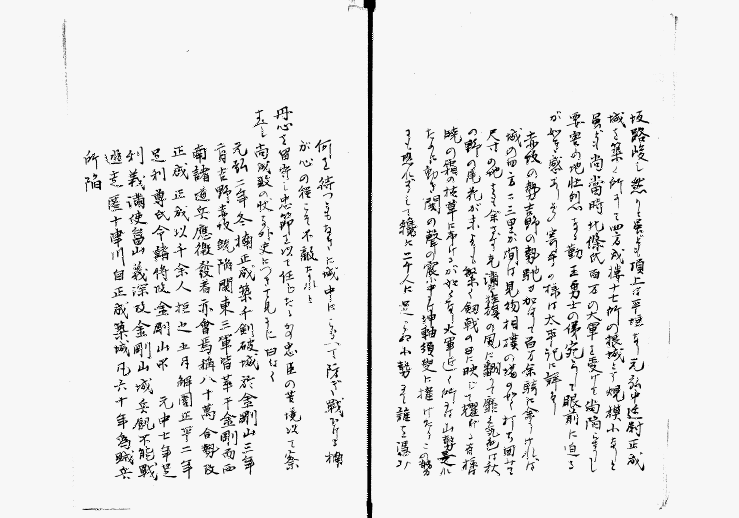 坂路峻し然りと雖も頂上は平坦なり元弘中廷尉正成
城を築く所にして四方成樓十七所の根城たり規模小なりと
雖も尚當時北條氏百万の大軍を受けて陥らず
要害の地壮烈なる勤王勇士の俤宛らにして眼前に迫る
が如き感あり寄手の様は太平記に詳なり
赤坂の勢吉野の勢馳加はりて百万余騎に余りければ
城の四方二三里が間は見物相撲の場の如く打ち囲て
尺寸の地をも余さず充満たり旌旗の風に翻て靡く気色は秋
の野の尾花が末よりも繁く劔戟の日に映じて耀ける有様は
暁の霜の枯草に布けるが如くなり大軍の近く所には山勢是に
ために動き閧の聲の震ふ中には坤軸須臾に摧けたりこの勢
にも恐れずして纔に二千人に足らぬ小勢にて誰を憑み
何を待つともなきに城中にこらへて防ぎ戰ける楠
が心の程こそ不敵なれと
丹心を留守し忠節を以て任じたる忠臣の苦境以て察
すべし尚成毀の状を外史につきて見るに曰く
元弘二年冬楠正成築千劔破城於金剛山三年
二月吉野赤坂既陥関東三軍皆萃于金剛而西
南諸道兵應徴發者亦會焉稱八十萬合勢攻
正成正成以千余人拒之五月解圍正平二年
足利尊氏令諸将攻金剛山不 元中七年足
利義満使畠山義深攻金剛山城兵飢不能戰
遁走匿十津川自正成築城凡六十年為賊兵
所陥